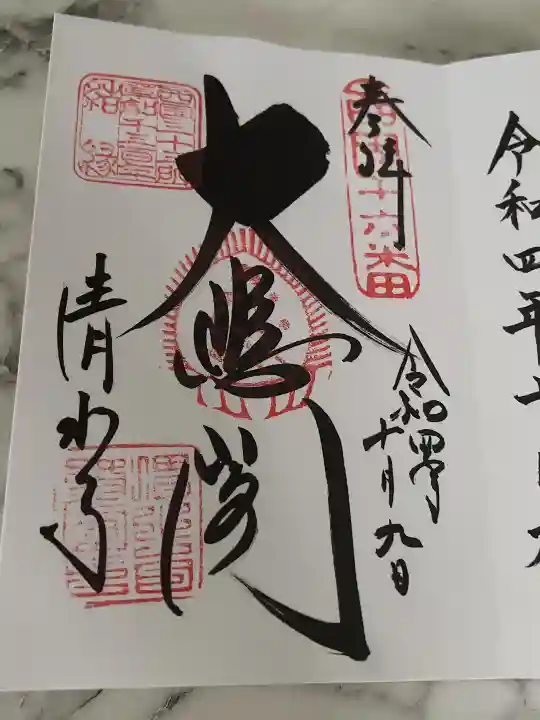 奉拝
西国十六番
令和四年
十月九日
大悲閣
清水寺
結縁
令和四年十